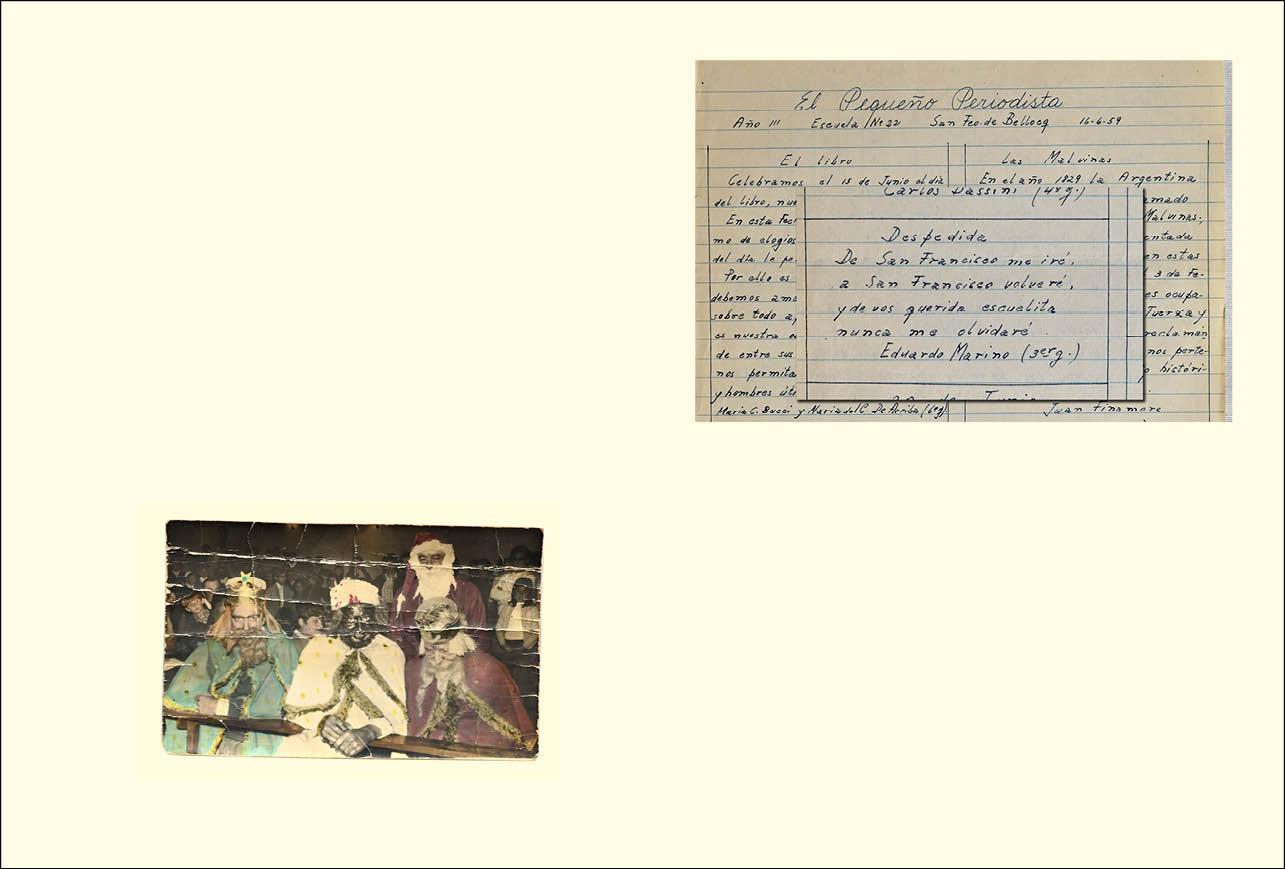 El Pequeño Periodista
Año III Escuela Nº 22 San Fco. de Bellocq 16-6-59
El libro
Celebramos el 15 de Junio el día
del libro, nue
En esta fec
mo de elogios
del día le pe
Por ello es
debemos ama
sobre todo a
es nuestra
de entre sus
nos permita
y hombres úti
María C. Bucci y María del C. De Arriba (6ºg)
Las Malvinas
En el año 1829 la Argentina
amado
Malvinas,
entada
en estas
l 3 de Fe-
es ocupa-
Tuerza y
reclaman
nos perte-
o históri-
Juan Finamore
Carlos Vassini (4ºg.)
Despedida
De San Francisco me iré,
a San Francisco volveré,
y de vos querida escuelita
nunca me olvidaré.
Eduardo Marino (3erg.)